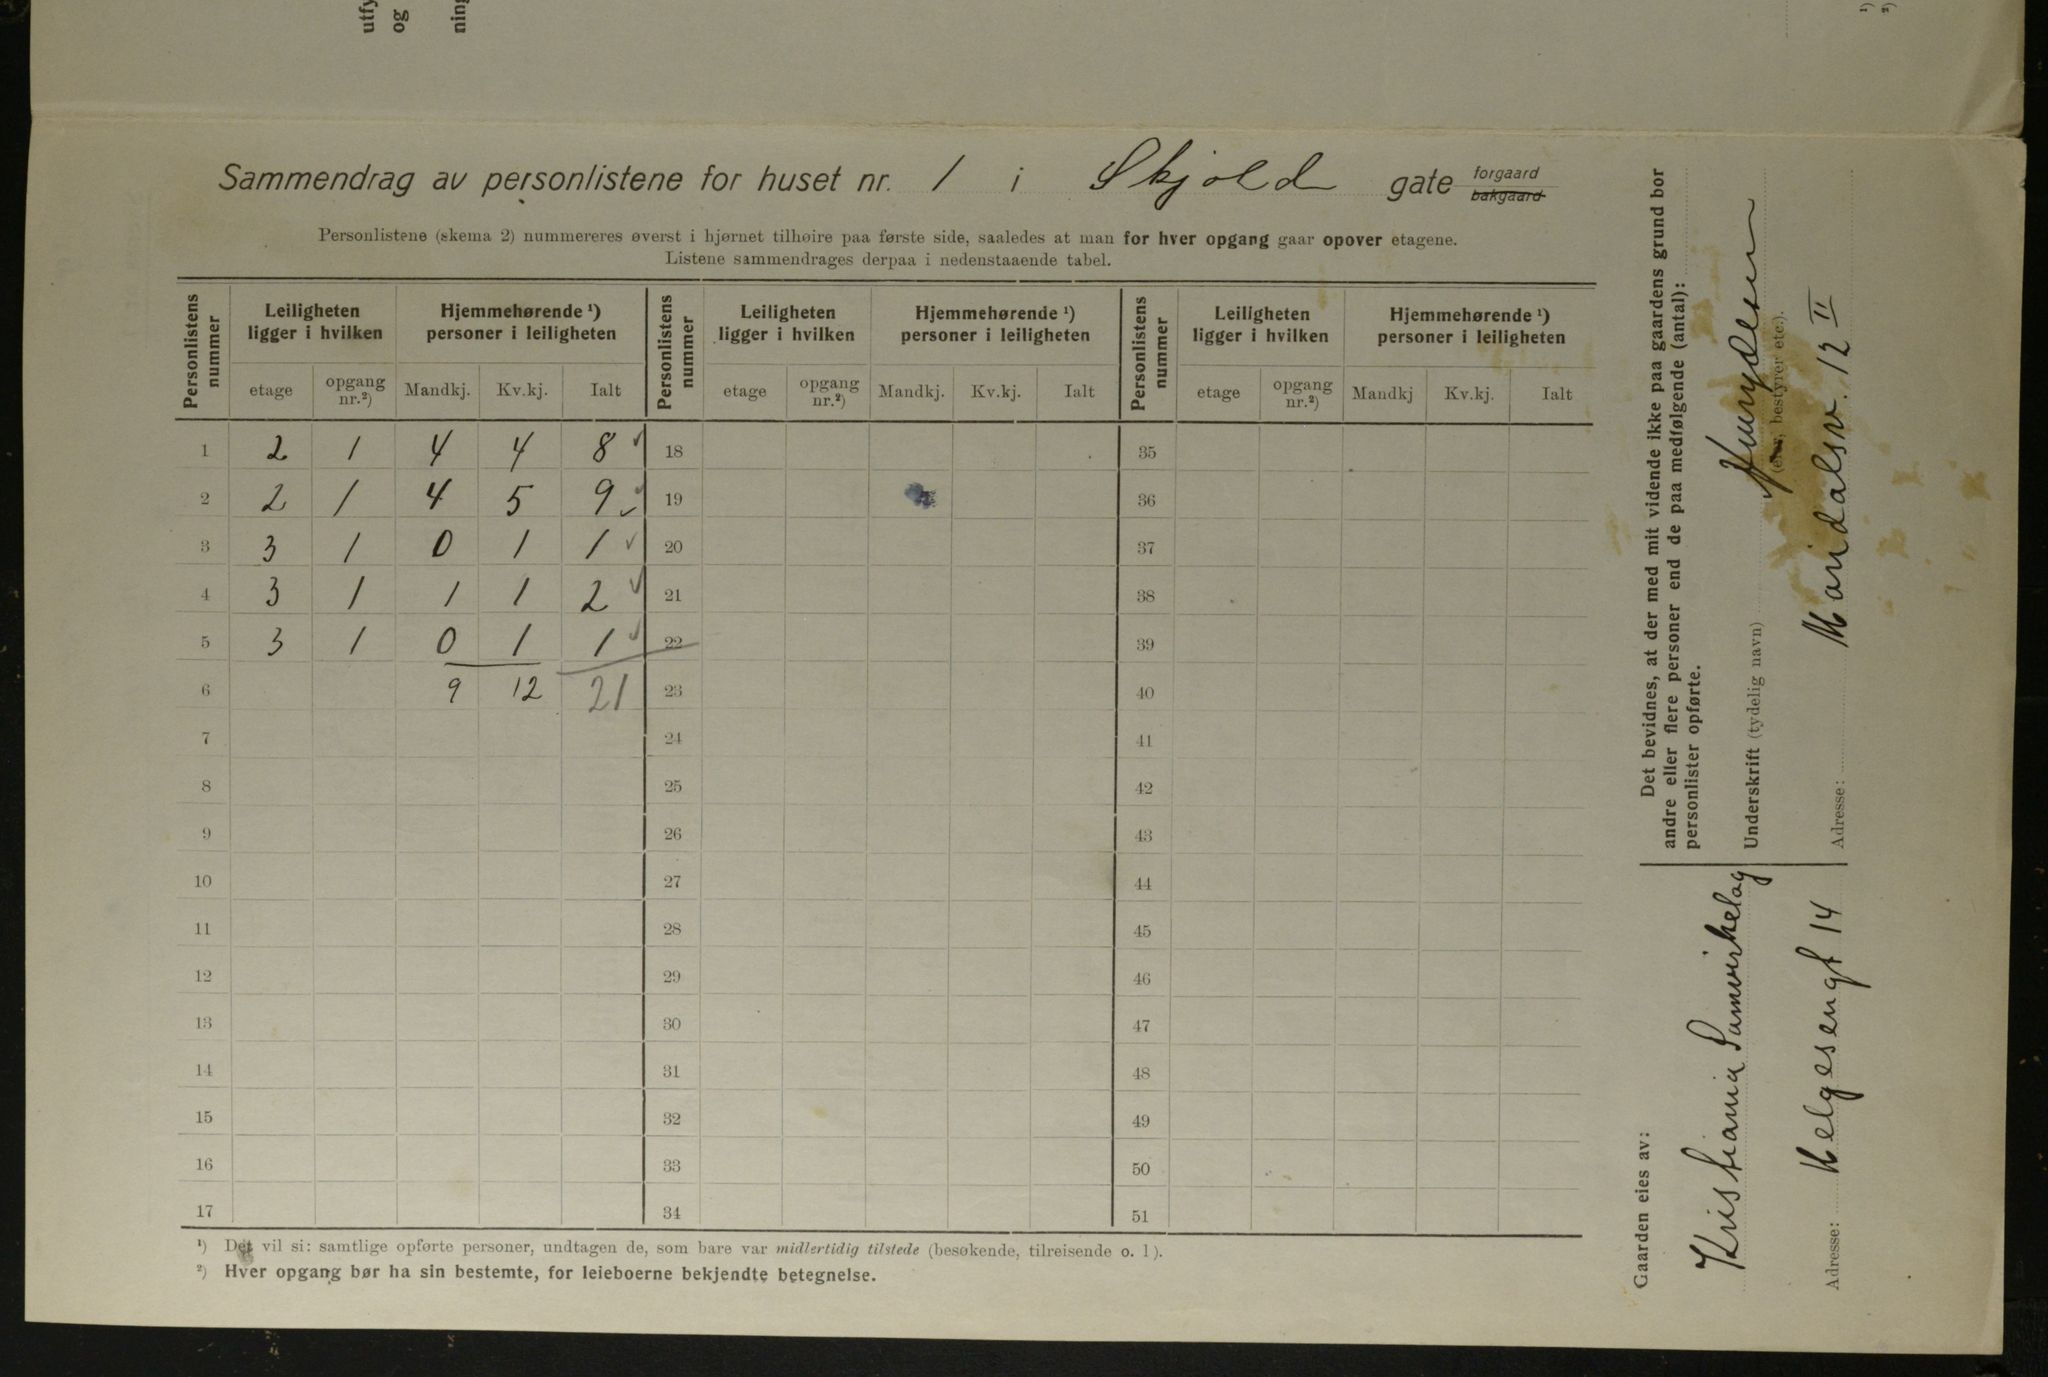 utfy
og
ning
¹)
²)
Sammendrag av personlistene for huset nr. 1 i Skjold gate forgaard bakgaard
Personlistene (skema 2) nummereres øverst i hjørnet tilhøire paa første side, saaledes at man for hver opgang gaar opover etagene.
Listene sammendrages derpaa i nedenstaaende tabel.
Personlistens nummer Leiligheten ligger i hvilken Hjemmehørende ¹) personer i leiligheten Personlistens nummer Leiligheten ligger i hvilken Hjemmehørende ¹) personer i leiligheten Personlistens nummer Leiligheten ligger i hvilken Hjemmehørende ¹) personer i leiligheten
etage opgang nr.²) Mandkj. Kv.kj. Ialt etage opgang nr.²) Mandkj. Kv.kj. Ialt etage opgang nr.²) Mandkj Kv.kj. Ialt
1 2 1 4 4 8 ✓ 18 35
2 2 1 4 5 9 ✓ 19 36
3 3 1 0 1 1 ✓ 20 37
4 3 1 1 1 2 ✓ 21 38
5 3 1 0 1 1 ✓ 22 39
6 9 12 21 23 40
7 24 41
8 25 42
9 26 43
10 27 44
11 28 45
12 29 46
13 30 47
14 31 48
15 32 49
16 33 50
17 34 51
¹) Det vil si: samtlige opførte personer, undtagen de, som bare var midlertidig tilstede (besøkende, tilreisende o. l).
²) Hver opgang bør ha sin bestemte, for leieboerne bekjendte betegnelse.
Det bevidnes, at der med mit vidende ikke paa gaardens grund bor
andre eller flere personer end de paa medfølgende (antal):
personlister opførte.
Underskrift (tydelig navn)
(eier, bestyrer etc.).
Adresse: Maridalsv. 12 II
Gaarden eies av:
Kristiania Samvirkelag
Adresse: Helgesengt 14